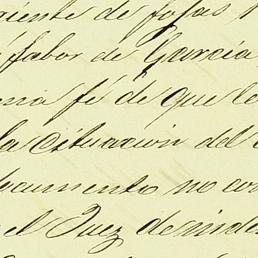 riente de fojas
favor de Garcia
ma fé de que lo
la cituacion del
documento no con
el Juez de